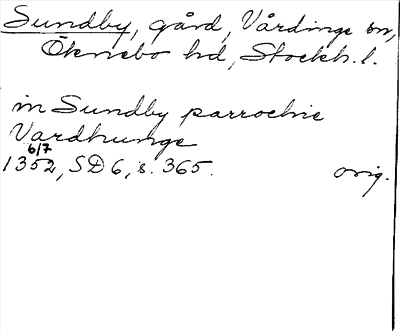 Sundby, gård, Vårdinge sn,
Öknebo hd, Stockh. l.
in Sundby parrochie
Vardhunge
6/7
1352, SD 6, s. 365. orig.